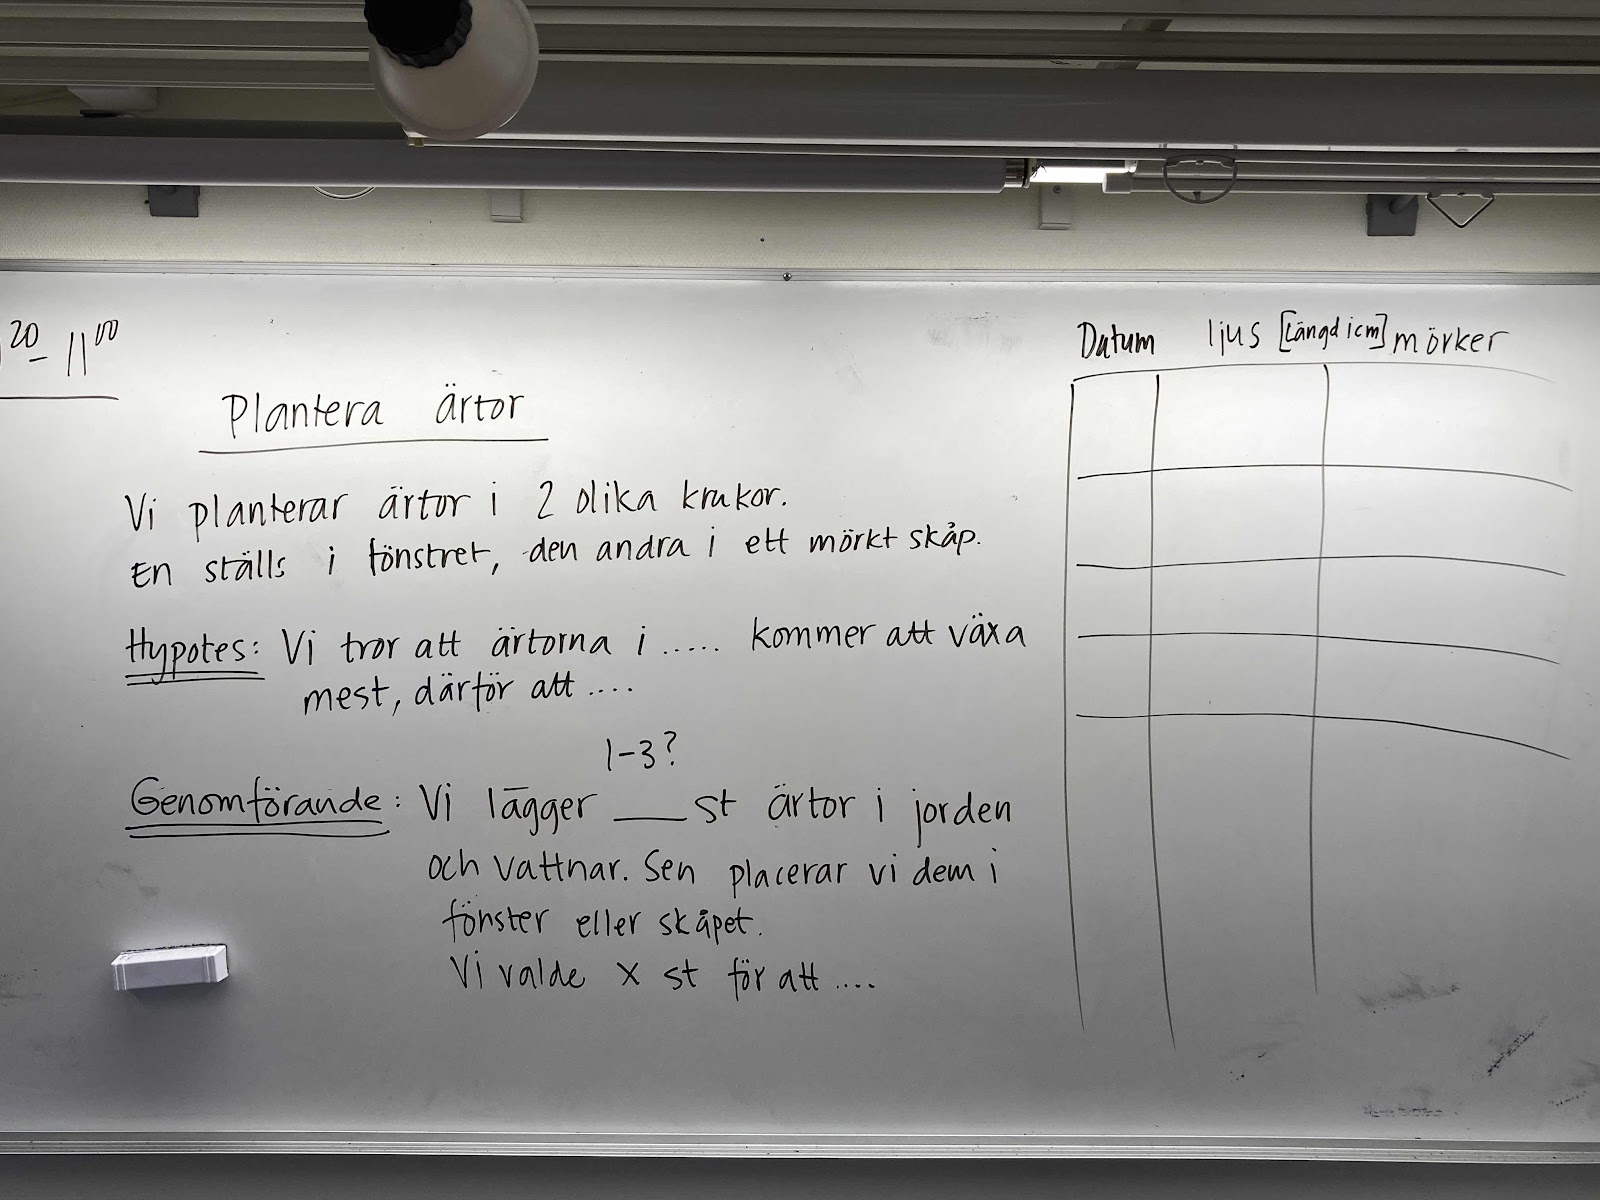 20 - 11 00
Plantera ärtor
Vi planterar ärtor i 2 olika krukor.
En ställs i fönstret, den andra i ett mörkt skåp.
Hypotes: Vi tror att ärtorna i ..... kommer att växa
mest, därför att ....
1-3?
Genomförande: Vi lägger ___ st ärtor i jorden
och vattnar. Sen placerar vi dem i
fönster eller skåpet.
Vi valde x st för att ....
Datum ljus [Längd i cm] mörker